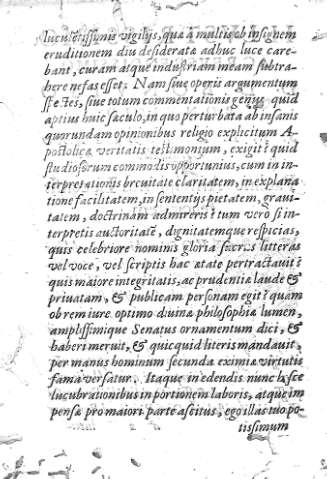 luculẽtissimis vigilijs, quæ à multis ob insignem
eruditionem diu desideratæ adhuc luce care-
bant, curam atque industriam meam subtra-
here nefas esset. Nam siue operis argumentum
spectes, siue totum commentationis genus, quid
aptius huic sæculo, in quo perturbata ab insanis
quorundam opinionibus religio explicitum A-
postolicæ veritatis testimonium, exigit? quid
studiosorum commodis opportunius, cum in in-
terpretationis breuitate claritatem, in explana
tione facilitatem, in sententijs pietatem, graui-
tatem, doctrinam admireris? tum vero si in-
terpretis auctoritatẽ, dignitatemque respicias,
quis celebriore nominis gloria sacras litteras
vel voce, vel scriptis hac ætate pertractauit?
quis maiore integritatis, ac prudentiæ laude &
priuatam, & publicam personam egit? quam
ob rem iure optimo diuinæ philosophiæ lumen,
amplissimique Senatus ornamentum dici, &
haberi meruit, & quicquid literis mandauit,
per manus hominum secunda eximiæ virtutis
fama versatur. Itaque in edendis nunc hisce
lucubrationibus in portionem laboris, atque im
pensæ pro maiori parte ascitus, ego illas tuo po-
tissimum